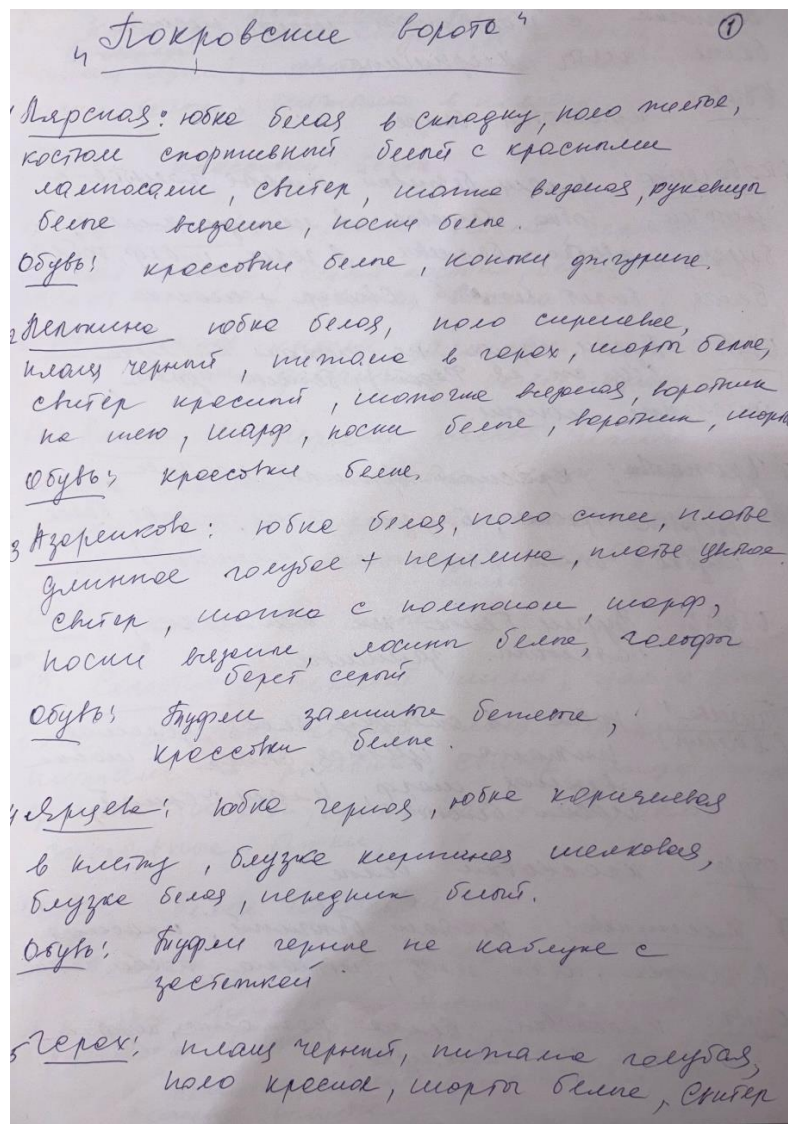 "Покровские ворота" 1
Лярская: юбка белая в складку, поло желтое,
костюм спортивный белый с красными
лампасами, свитер, шапка вязаная, рукавицы
белые вязаные, носки белые.
Обувь: кроссовки белые, коньки фигурные.
2 Пелькина юбка белая, поло сиреневое,
плащ черный, пижама в горох, шорты белые,
свитер красный, шапочка вязаная, воротник
на шею, шарф, носки белые, воротник,
Обувь: кроссовки белые.
3 Азаренкова: юбка белая, поло синее, платье
длинное голубое + перелина, платье цветное
свитер, шапка с помпоном, шарф,
носки вязаные, лосины белые, гольфы
берет серый
Обувь: Туфли замшевые бежевые,
кроссовки белые.
4 Ярцева: юбка черная, юбка коричневая
в клетку, блузка шелковая,
блузка белая, передник белый.
Обувь: Туфли черные на каблуке с
застежкой
5 Герох: плащ черный, пижама голубая,
поло красное, шорты белые, свитер